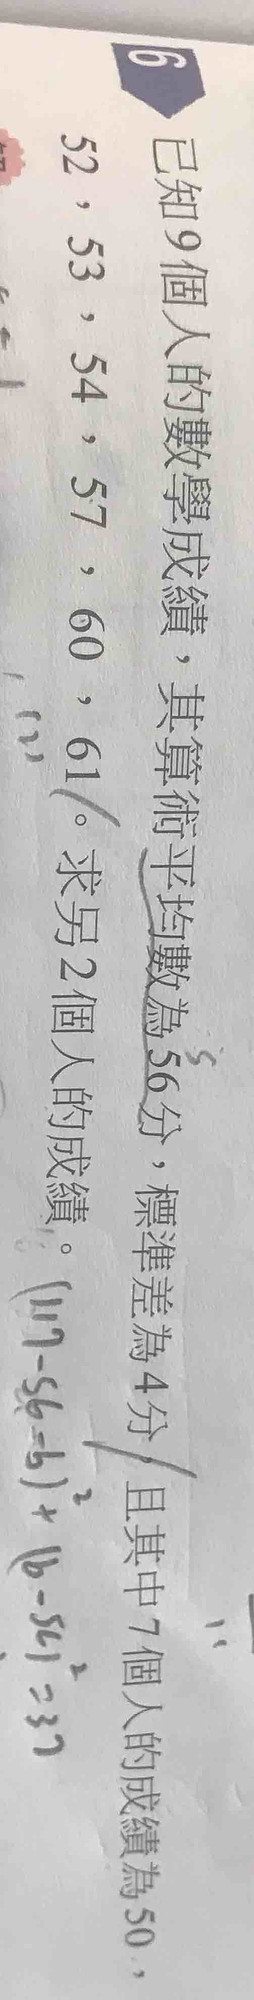 6 已知9個人的數學成績，其算術平均數為56分，標準差為4分，且其中7個人的成績為50，
52，53，54，57，60，61。求另2個人的成績。 (117-56-b)² + (b-56)² = 37
(2)